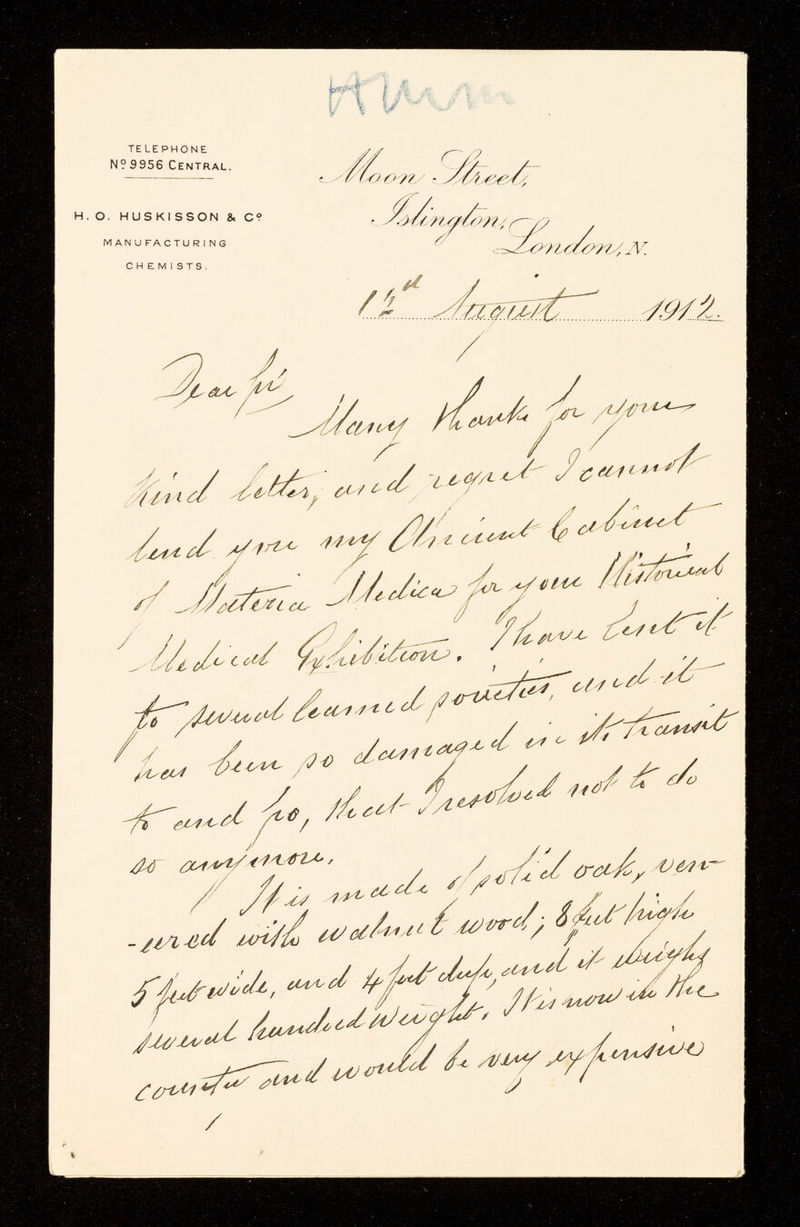 HMM
TELEPHONE
No 9956 CENTRAL.
H. O. HUSKISSON & Co
MANUFACTURING
CHEMISTS.
Moon Street,
Islington,
London, N.
August 1912.
Dear Sir
Many thanks for your
kind letter, and regret I cannot
lend you my Ancient Cabinet
of Materia Medica for your Historical
Medical Exhibition. I have lent it
to several learned societies, and it
has been so damaged in its transit
to and fro, that I resolved not to do
so anymore.
It is made of solid oak, ven-
-eered with walnut wood; 8 feet high
5 feet wide, and 4 feet deep, and it weighs
several hundred weight. It is now in the
country and would be very expensive